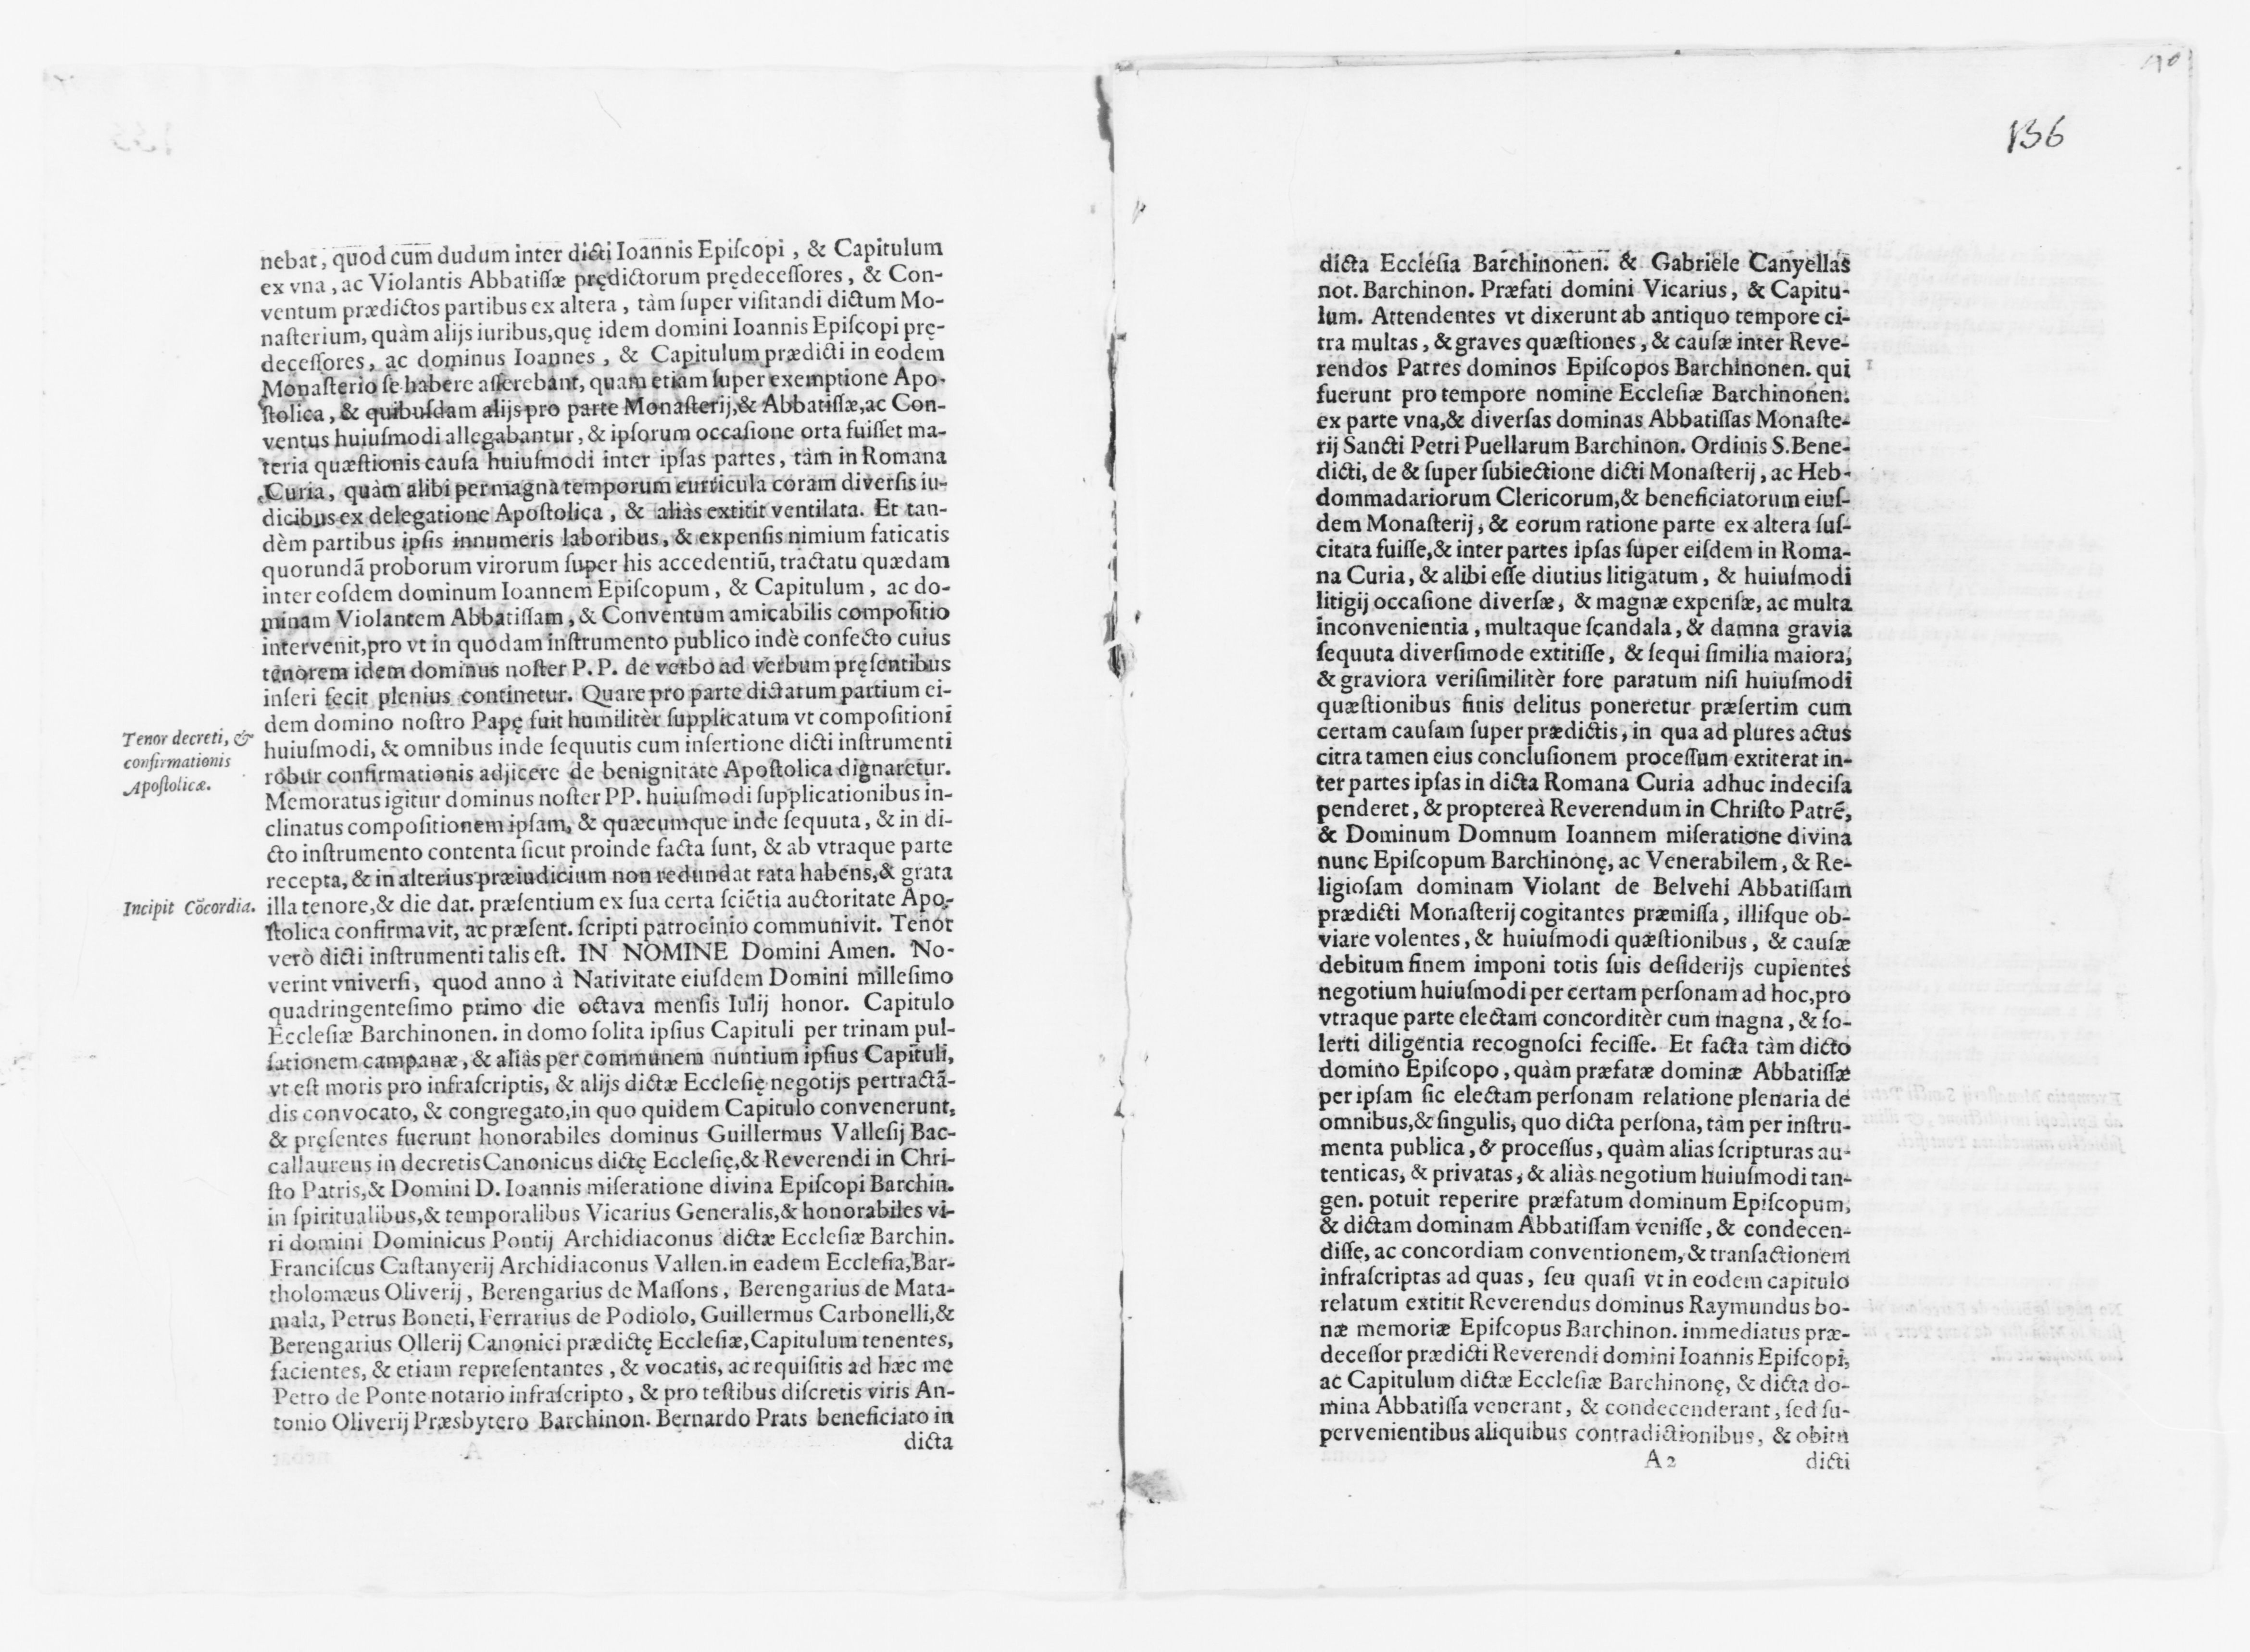 nebat, quod cum dudum inter dicti Ioannis Epiſcopi, & Capitulum
ex vna, ac Violantis Abbatiſſæ prędictorum prędeceſſores, & Con-
ventum prædictos partibus ex altera, tàm ſuper viſitandi dictum Mo-
naſterium, quàm alijs iuribus, quę idem domini Ioannis Epiſcopi prę-
deceſſores, ac dominus Ioannes, & Capitulum prædicti in eodem
Monaſterio ſe habere aſſerebant, quam etiam ſuper exemptione Apo-
ſtolica, & quibuſdam alijs pro parte Monaſterij, & Abbatiſſæ, ac Con-
ventus huiuſmodi allegabantur, & ipſorum occaſione orta fuiſſet ma-
teria quæſtionis cauſa huiuſmodi inter ipſas partes, tàm in Romana
Curia, quàm alibi per magna temporum curricula coram diverſis iu-
dicibus ex delegatione Apoſtolica, & aliàs extitit ventilata. Et tan-
dèm partibus ipſis innumeris laboribus, & expenſis nimium faticatis
quorundã proborum virorum ſuper his accedentiũ, tractatu quædam
inter eoſdem dominum Ioannem Epiſcopum, & Capitulum, ac do-
minam Violantem Abbatiſſam, & Conventum amicabilis compoſitio
intervenit, pro vt in quodam inſtrumento publico indè confecto cuius
tenorem idem dominus noſter P. P. de verbo ad verbum pręſentibus
inſeri fecit plenius continetur. Quare pro parte dictatum partium ei-
dem domino noſtro Papę fuit humilitèr ſupplicatum vt compoſitioni
Tenor decreti, &
confirmationis
Apoſtolicæ.
huiuſmodi, & omnibus inde ſequutis cum inſertione dicti inſtrumenti
robur confirmationis adjicere de benignitate Apoſtolica dignaretur.
Memoratus igitur dominus noſter PP. huiuſmodi ſupplicationibus in-
clinatus compoſitionem ipſam, & quæcumque inde ſequuta, & in di-
cto inſtrumento contenta ſicut proinde facta ſunt, & ab vtraque parte
recepta, & in alterius præiudicium non redundat rata habens, & grata
Incipit Cõcordia.
illa tenore, & die dat. præſentium ex ſua certa ſciẽtia auctoritate Apo-
ſtolica confirmavit, ac præſent. ſcripti patrocinio communivit. Tenor
verò dicti inſtrumenti talis eſt. IN NOMINE Domini Amen. No-
verint vniverſi, quod anno à Nativitate eiuſdem Domini milleſimo
quadringenteſimo primo die octava menſis Iulij honor. Capitulo
Eccleſiæ Barchinonen. in domo ſolita ipſius Capituli per trinam pul-
ſationem campanæ, & aliàs per communem nuntium ipſius Capituli,
vt eſt moris pro infraſcriptis, & alijs dictæ Eccleſię negotijs pertractã-
dis convocato, & congregato, in quo quidem Capitulo convenerunt,
& pręſentes fuerunt honorabiles dominus Guillermus Valleſij Bac-
callaureus in decretis Canonicus dictę Eccleſię, & Reverendi in Chri-
ſto Patris, & Domini D. Ioannis miſeratione divina Epiſcopi Barchin.
in ſpiritualibus, & temporalibus Vicarius Generalis, & honorabiles vi-
ri domini Dominicus Pontij Archidiaconus dictæ Eccleſiæ Barchin.
Franciſcus Caſtanyerij Archidiaconus Vallen. in eadem Eccleſia, Bar-
tholomæus Oliverij, Berengarius de Maſſons, Berengarius de Mata-
mala, Petrus Boneti, Ferrarius de Podiolo, Guillermus Carbonelli, &
Berengarius Ollerij Canonici prædictę Eccleſiæ, Capitulum tenentes,
facientes, & etiam repreſentantes, & vocatis, ac requiſitis ad hæc me
Petro de Ponte notario infraſcripto, & pro teſtibus diſcretis viris An-
tonio Oliverij Præsbytero Barchinon. Bernardo Prats beneficiato in
dicta
136
dicta Eccleſia Barchinonen. & Gabriele Canyellas
not. Barchinon. Præfati domini Vicarius, & Capitu-
lum. Attendentes vt dixerunt ab antiquo tempore ci-
tra multas, & graves quæſtiones, & cauſæ inter Reve-
rendos Patres dominos Epiſcopos Barchinonen. qui
1
fuerunt pro tempore nomine Eccleſiæ Barchinonen.
ex parte vna, & diverſas dominas Abbatiſſas Monaſte-
rij Sancti Petri Puellarum Barchinon. Ordinis S. Bene-
dicti, de & ſuper ſubiectione dicti Monaſterij, ac Heb-
dommadariorum Clericorum, & beneficiatorum eiuſ-
dem Monaſterij, & eorum ratione parte ex altera ſuſ-
citata fuiſſe, & inter partes ipſas ſuper eiſdem in Roma-
na Curia, & alibi eſſe diutius litigatum, & huiuſmodi
litigij occaſione diverſæ, & magnæ expenſæ, ac multa
inconvenientia, multaque ſcandala, & damna gravia
ſequuta diverſimode extitiſſe, & ſequi ſimilia maiora,
& graviora veriſimilitèr fore paratum niſi huiuſmodi
quæſtionibus finis delitus poneretur præſertim cum
certam cauſam ſuper prædictis, in qua ad plures actus
citra tamen eius concluſionem proceſſum extiterat in-
ter partes ipſas in dicta Romana Curia adhuc indeciſa
penderet, & proptereà Reverendum in Chriſto Patrẽ,
& Dominum Domnum Ioannem miſeratione divina
nunc Epiſcopum Barchinonę, ac Venerabilem, & Re-
ligioſam dominam Violant de Belvehi Abbatiſſam
prædicti Monaſterij cogitantes præmiſſa, illiſque ob-
viare volentes, & huiuſmodi quæſtionibus, & cauſæ
debitum finem imponi totis ſuis deſiderijs cupientes
negotium huiuſmodi per certam perſonam ad hoc, pro
vtraque parte electam concorditèr cum magna, & ſo-
lerti diligentia recognoſci feciſſe. Et facta tàm dicto
domino Epiſcopo, quàm præfatæ dominæ Abbatiſſæ
per ipſam ſic electam perſonam relatione plenaria de
omnibus, & ſingulis, quo dicta perſona, tàm per inſtru-
menta publica, & proceſſus, quàm alias ſcripturas au-
tenticas, & privatas, & aliàs negotium huiuſmodi tan-
gen. potuit reperire præfatum dominum Epiſcopum,
& dictam dominam Abbatiſſam veniſſe, & condecen-
diſſe, ac concordiam conventionem, & tranſactionem
infraſcriptas ad quas, ſeu quaſi vt in eodem capitulo
relatum extitit Reverendus dominus Raymundus bo-
næ memoriæ Epiſcopus Barchinon. immediatus præ-
deceſſor prædicti Reverendi domini Ioannis Epiſcopi,
ac Capitulum dictæ Eccleſiæ Barchinonę, & dicta do-
mina Abbatiſſa venerant, & condecenderant, ſed ſu-
pervenientibus aliquibus contradictionibus, & obitu
A 2 dicti